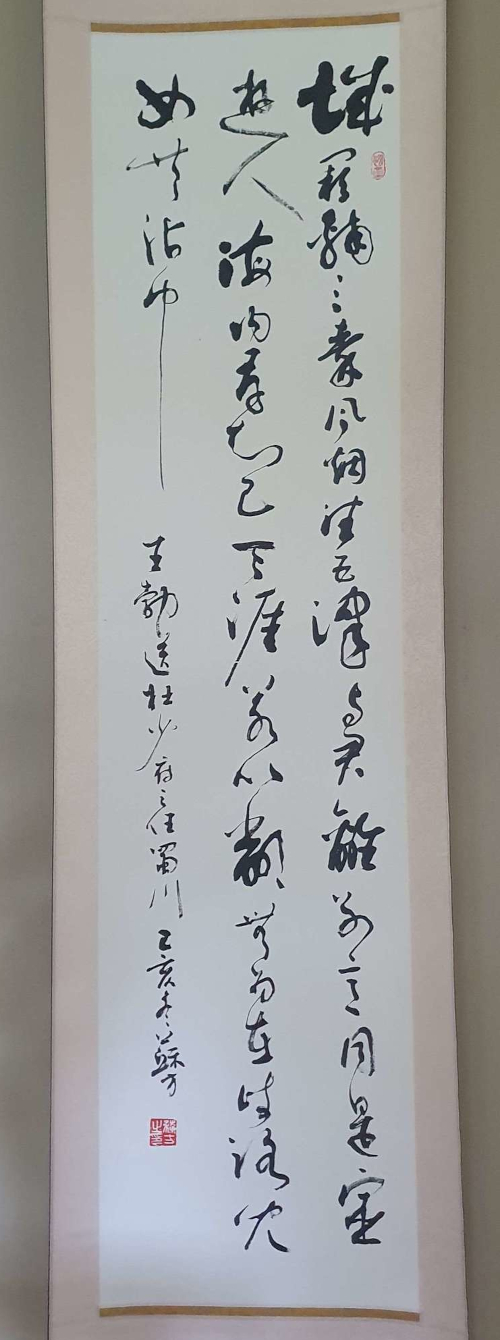 城闕輔三秦風烟望五津与君離別意同是宦
遊人海内存知己天涯若比鄰無為在歧路兒
女共沾巾
王勃送杜少府之任蜀川 乙亥冬 蘇方